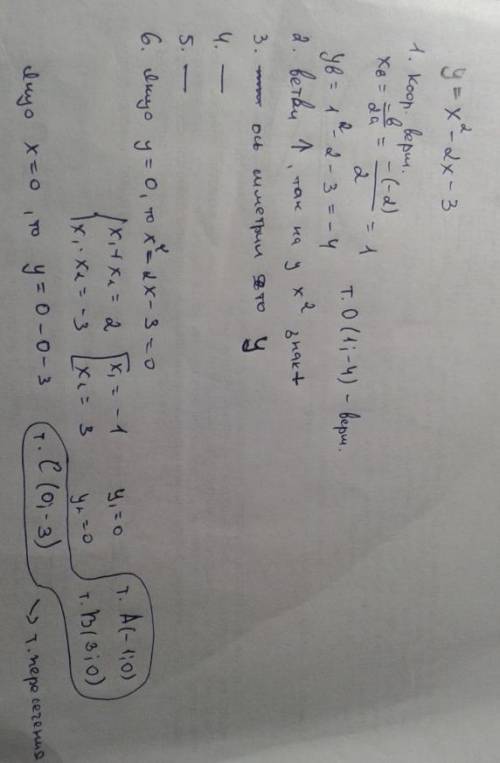 y = x² - 2x - 3
1. Коор. верш.
xв = -в/2a = -(-2)/2 = 1
yв = 1² - 2 - 3 = -4 т. О (1; -4) - верш.
2. ветви ↑, так на у x² знак +
3. ось симметрии это y
4. —
5. —
6. Якщо y = 0, то x² = 2x - 3 = 0
{x₁ + x₂ = 2 [x₁ = -1 y₁ = 0 т. A(-1; 0)
{x₁ · x₂ = -3 [x₂ = 3 y₂ = 0 т. B(3; 0)
Якщо x = 0, то y = 0 - 0 - 3 т. C (0; -3) ↘ т. пересечения